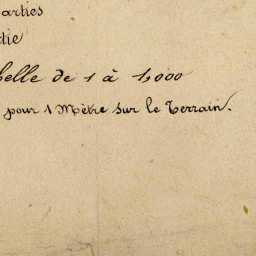 arties
tie
helle de 1 à 1,000
pour 1 Mètre sur le Terrain.